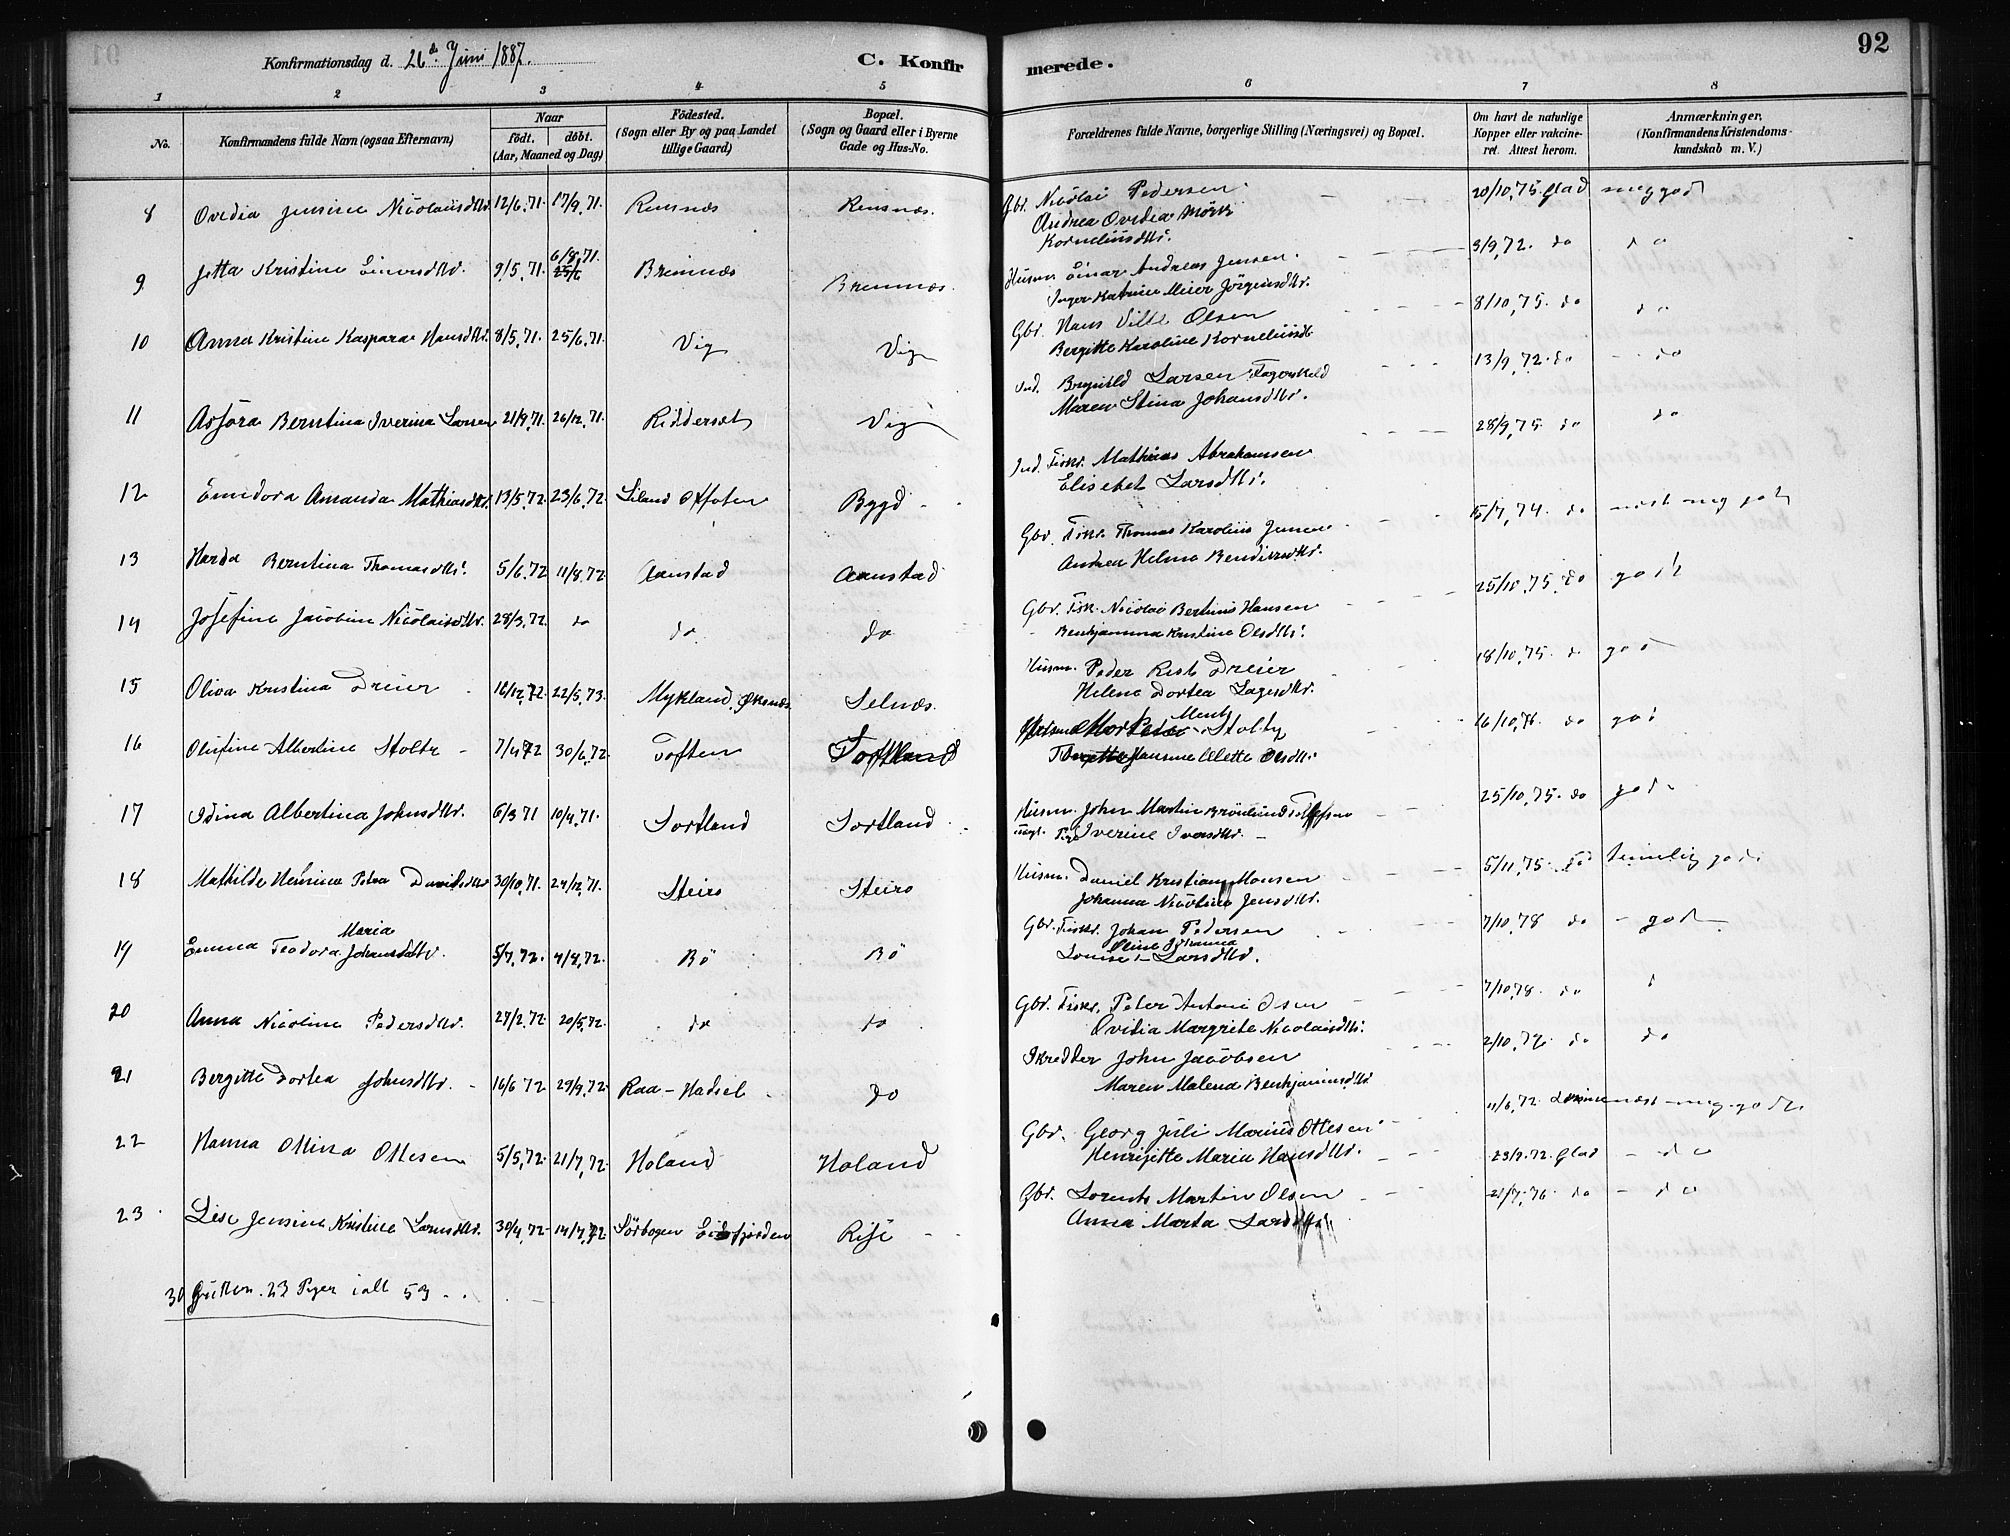 Konfirmationsdag d. 26de Juni 1887.
C. Konfirmerede.
92
1 2 3 4 5 6 7 8
No.
Konfirmandens fulde Navn (ogsaa Efternavn)
Naar
födt. döbt.
(Aar, Maaned og Dag)
Födested.
(Sogn eller By og paa Landet
tillige Gaard)
Bopæl.
(Sogn og Gaard eller i Byerne
Gade og Hus-No.
Forældrenes fulde Navne, borgerlige Stilling (Næringsvei) og Bopæl.
Om havt de naturlige
Kopper eller vakcineret. Attest herom.
Anmærkninger,
(Konfirmandens Kristendomskundskab m. V.)
8 Ovidia Jensine Nicolaisdtr. 12/6.71. 17/9.71. Reinsnes Reinsnes. Gbr. Nicolai Pedersen 20/10.75. Glad meg godt
Andrea Ovidia Mörk
Korneliusdtr.
9 Jetta Kristine Einersdtr. 9/5.71. 6/8.71. 25/6 Breimnes Bremnes. Husm. Einar Andreas Jensen. 3/9.72. do do
Inger Katrine Meier Jörgensdtr.
10 Anna Kristine Kaspara Hansdtr. 8/5.71. 25/6.71. Vig Vig Gbr. Hans Vilte Olsen 8/10.75. do do
Bergitte Karoline Kornelius dt.
11 Asfora Berntina Iverina Larsen 21/9.71. 26/12.71. Ridderset Vig Ind. Larsen 13/9.72. do do
Maren Stina Johansdtr.
12 Emidora Amanda Mathiasdtr. 13/5.72. 23/6.72 Liland Ofoten Bygd Ind. Fiskr. Mathias Abrahamsen 28/9.75 do do
Elisebet Larsdtr.
13 Harda Berntina Thomasdtr. 5/6.72 11/8.72 Aanstad Aanstad Gbr. Fiskr. Thomas Karolius Jensen 15/7.74. do næst meg godt
Andrea Helene Bendixsdtr.
14 Josefine Jacobine Nicolaisdtr. 28/3.72. do do do Gbr. Fisk. Nicolai Bertinus Hansen 25/10.75. do godt
Benhjamina Kristine Olsdtr.
15 Oliva Kristina Dreier 16/12.72. 22/5.73. Mykland, Øksnes. Selnæs. Husm. Peder Rist Dreier 18/10.75. do god
Helene Dortea Lagesdtr.
16 Olufine Albertine Stolte 7/4 72 30/6.72. Toften Sortland Mentz Stolty 16/10.76. do god
Hansine Olette Olsdtr.
17 Idina Albertina Johnsdtr. 6/3 71 10/4.71. Sortland Sortland Husm. John Martin Brönlund 25/10.75. do god
ugt. Pige Iverine Iversdtr.
18 Mathilde Henrine Petra Danielsdtr. 30/10.71. 24/12.71. Steiro Steiro Husm. Daniel Kristian Monsen 5/11.75. do temelig god
Johanna Nicoline Jensdtr.
19 Emma Teodora Maria Johansdtr. 5/7.72. 4/8.72. Bö Bö Gbr. Fiskr. Johan Pedersen 7/10.78 do god
Oline Johanna
Louise Larsdtr.
20 Anna Nicoline Pedersdtr. 27/2.72. 20/5.72. do do Gbr. Fiskr. Peter Antoni Olsen 7/10.78. do
Ovidia Margrete Nicolaisdtr.
21 Bergitte Dortea Johnsdtr. 16/6 72 29/9.72. Raa - Hadsel do Skredder John Jacobsen 2/10.76. do do
Maren Malena Benhjaminsdtr.
22 Hanna Ottina Ottesen 5/5.72. 21/7.72. Holand Holand Gbr. Georg Juli Marius Ottesen 11/6.72. næst meg godt
Henrijette Maria Hansdtr. 23/9.72. Glad do
23 Lise Jensine Kristine Lornsdtr. 30/4.72 14/7.72. Sörbogen Eidsfjorden Rise Gbr. Lorents Martin Olsen 21/7.76. do do
Anna Marta Larsdtr
30 Gutter. 23 Piger ialt 53